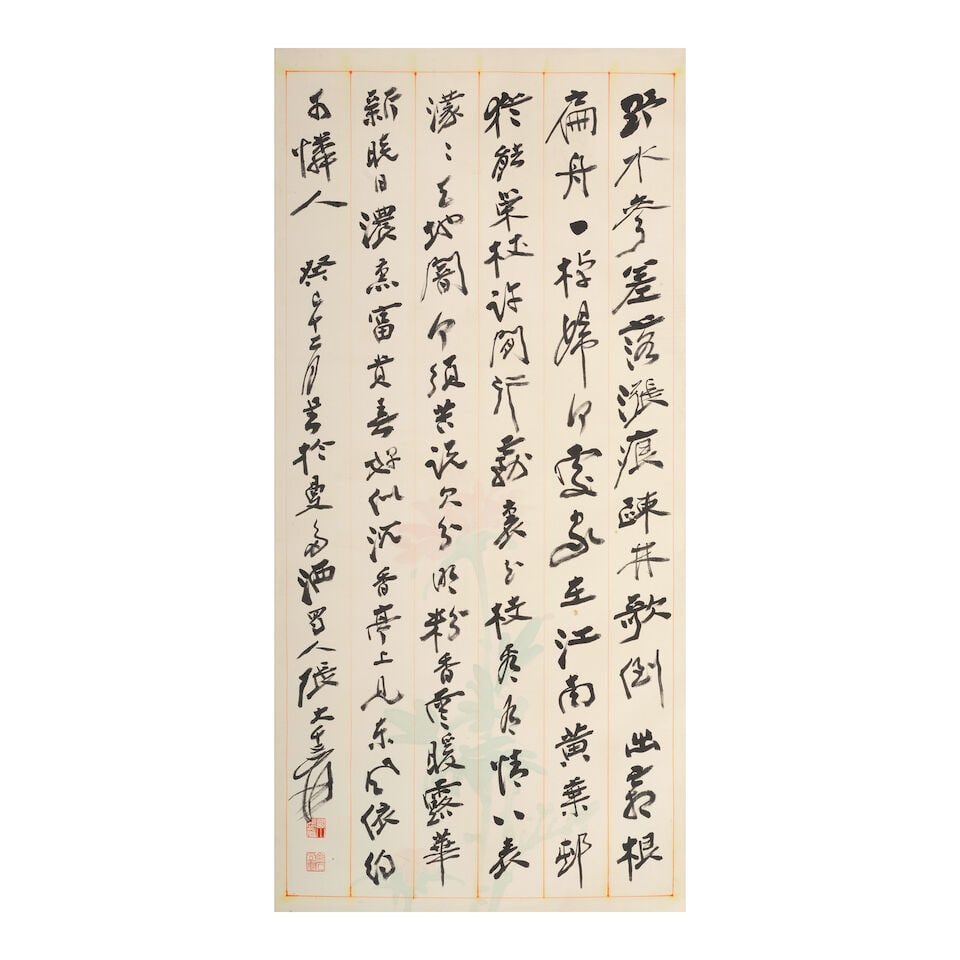 野水參差落漲痕疎林欹倒出霜根
扁舟一棹歸何處家在江南黃葉邨
猶能策杖許閒行裹分有情八表
濛〻天地闇何須苦說欠分明粉香雲暖露華
新曉日濃熏富貴春好似沉香亭上見東風依約
可憐人 癸巳十二月書於曼多洒蜀人張大千爰